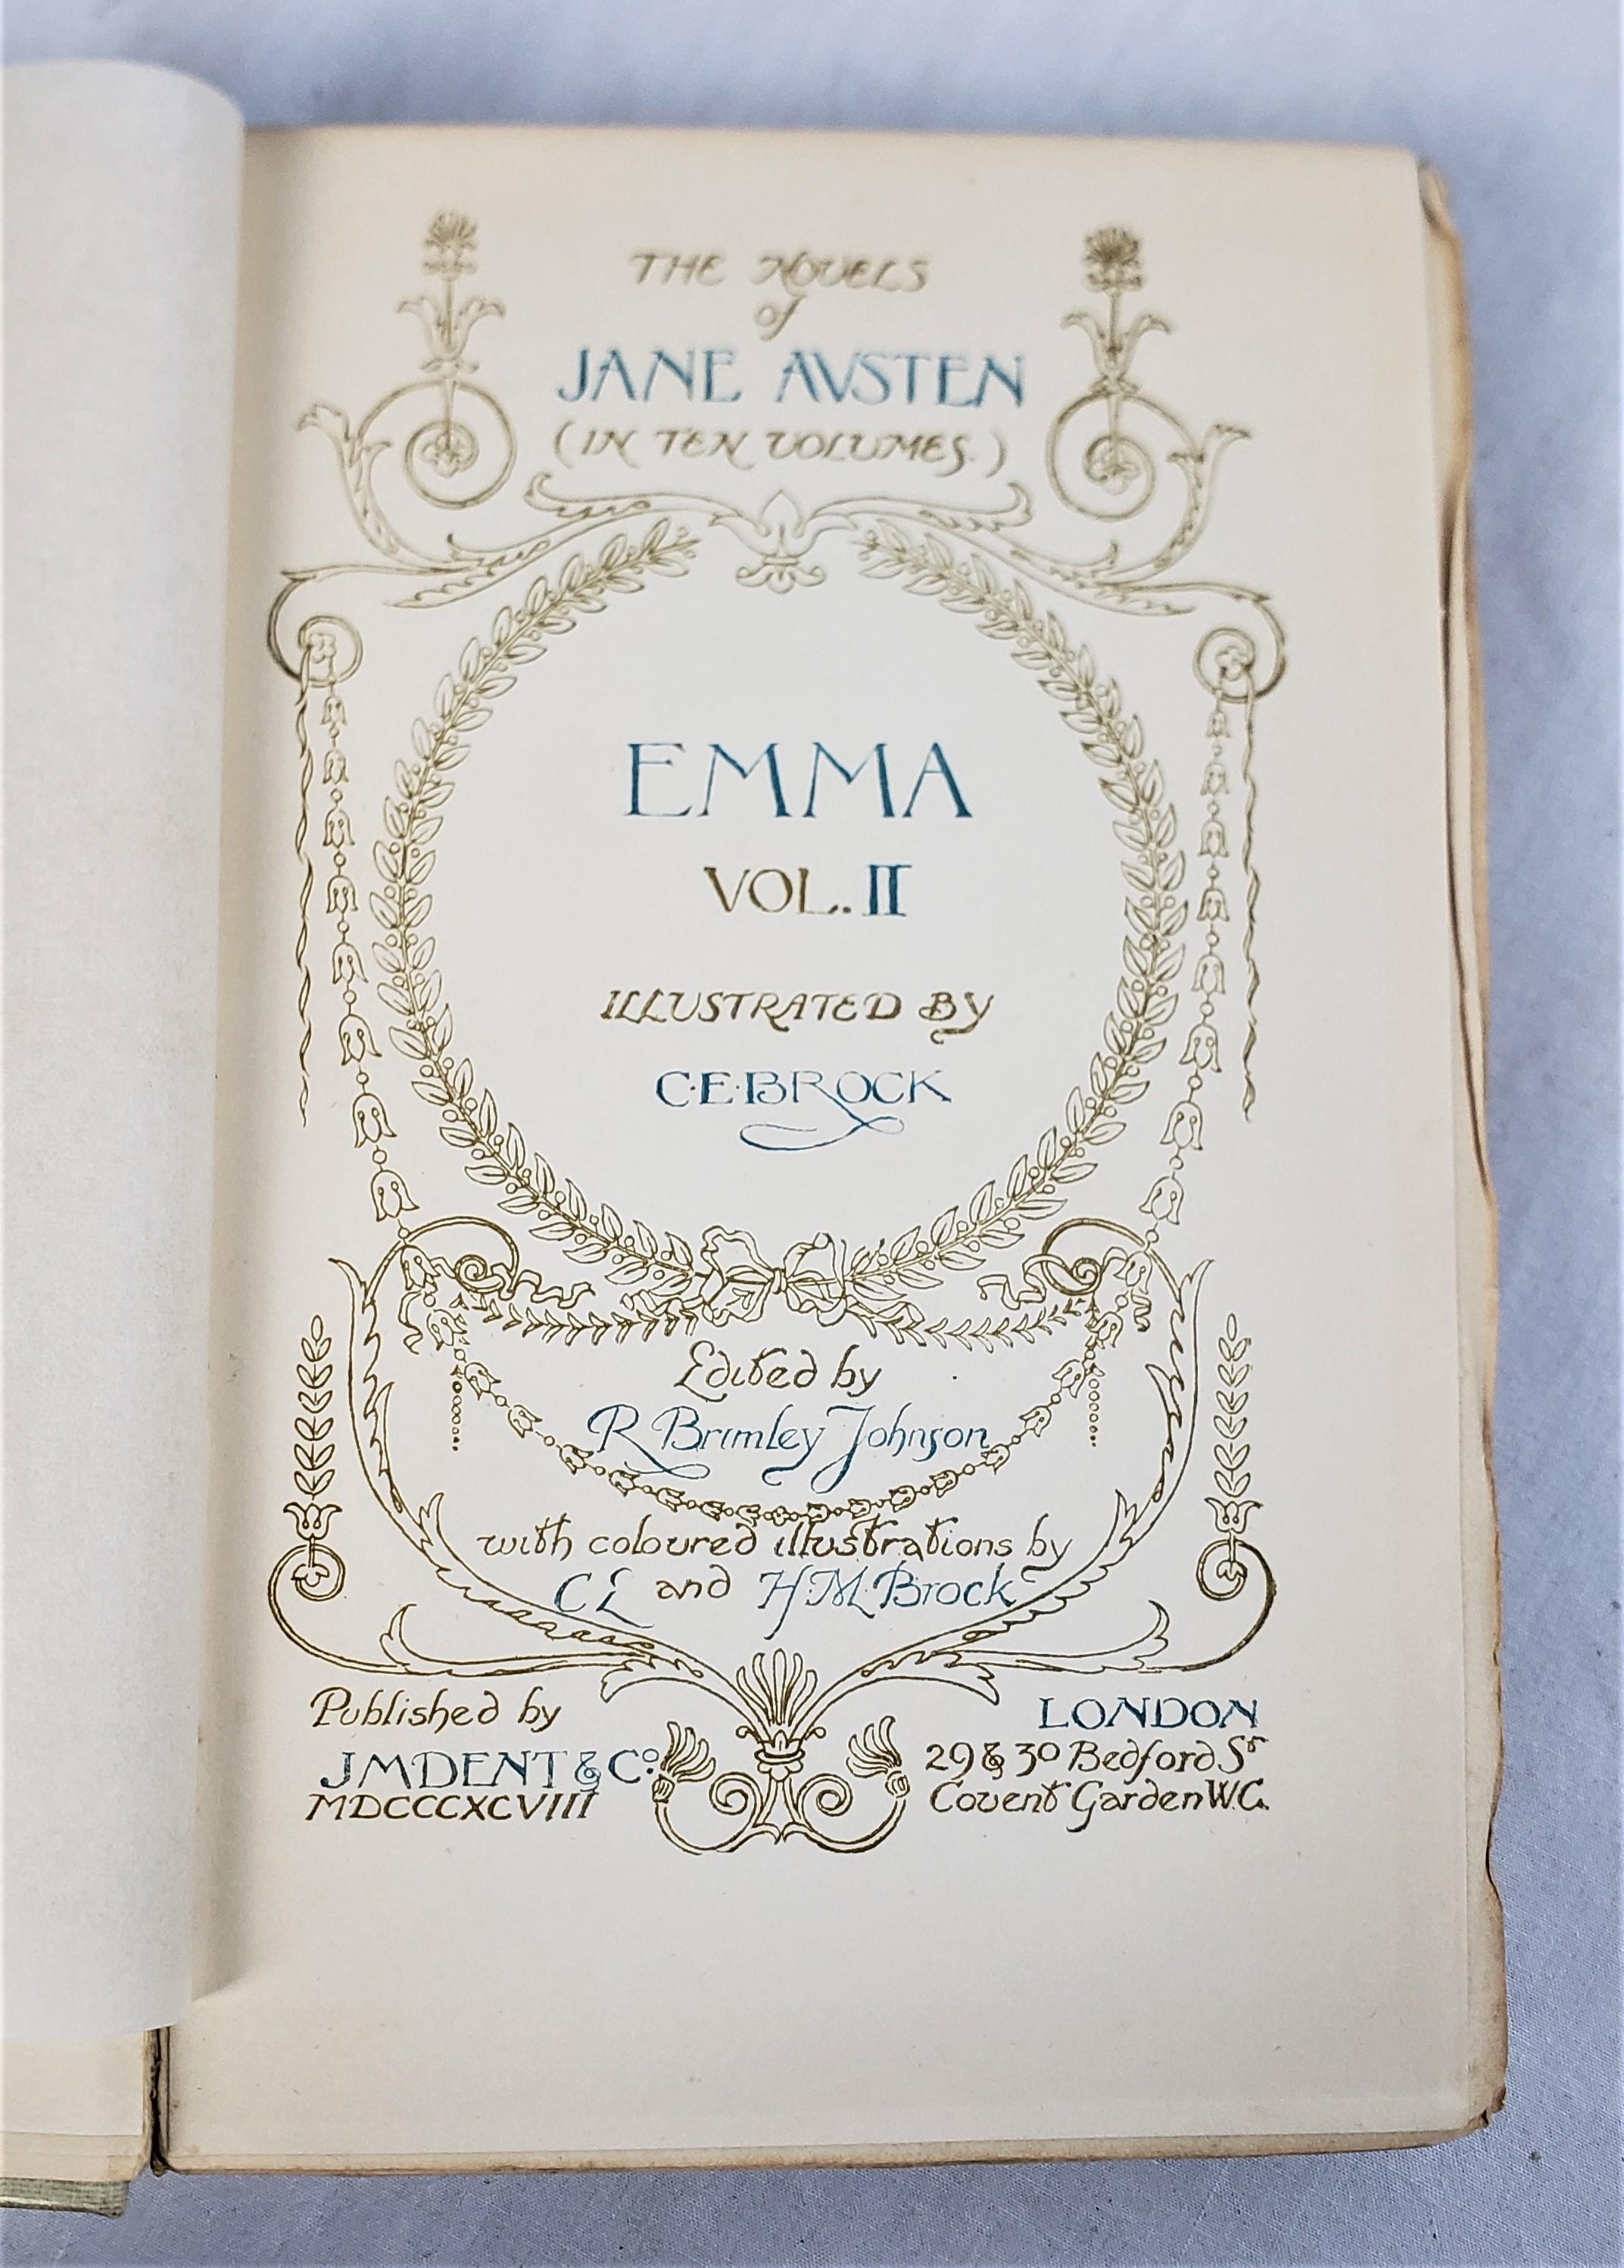 THE NOVELS
of
JANE AVSTEN
(IN TEN VOLUMES.)
EMMA
VOL. II
ILLUSTRATED BY
C·E·BROCK
Edited by
R Brimley Johnson
with coloured illustrations by
C E and H·M·Brock
Published by
JMDENT & Co:
MDCCCXCVIII
LONDON
29 & 30 Bedford St
Covent Garden W.C.